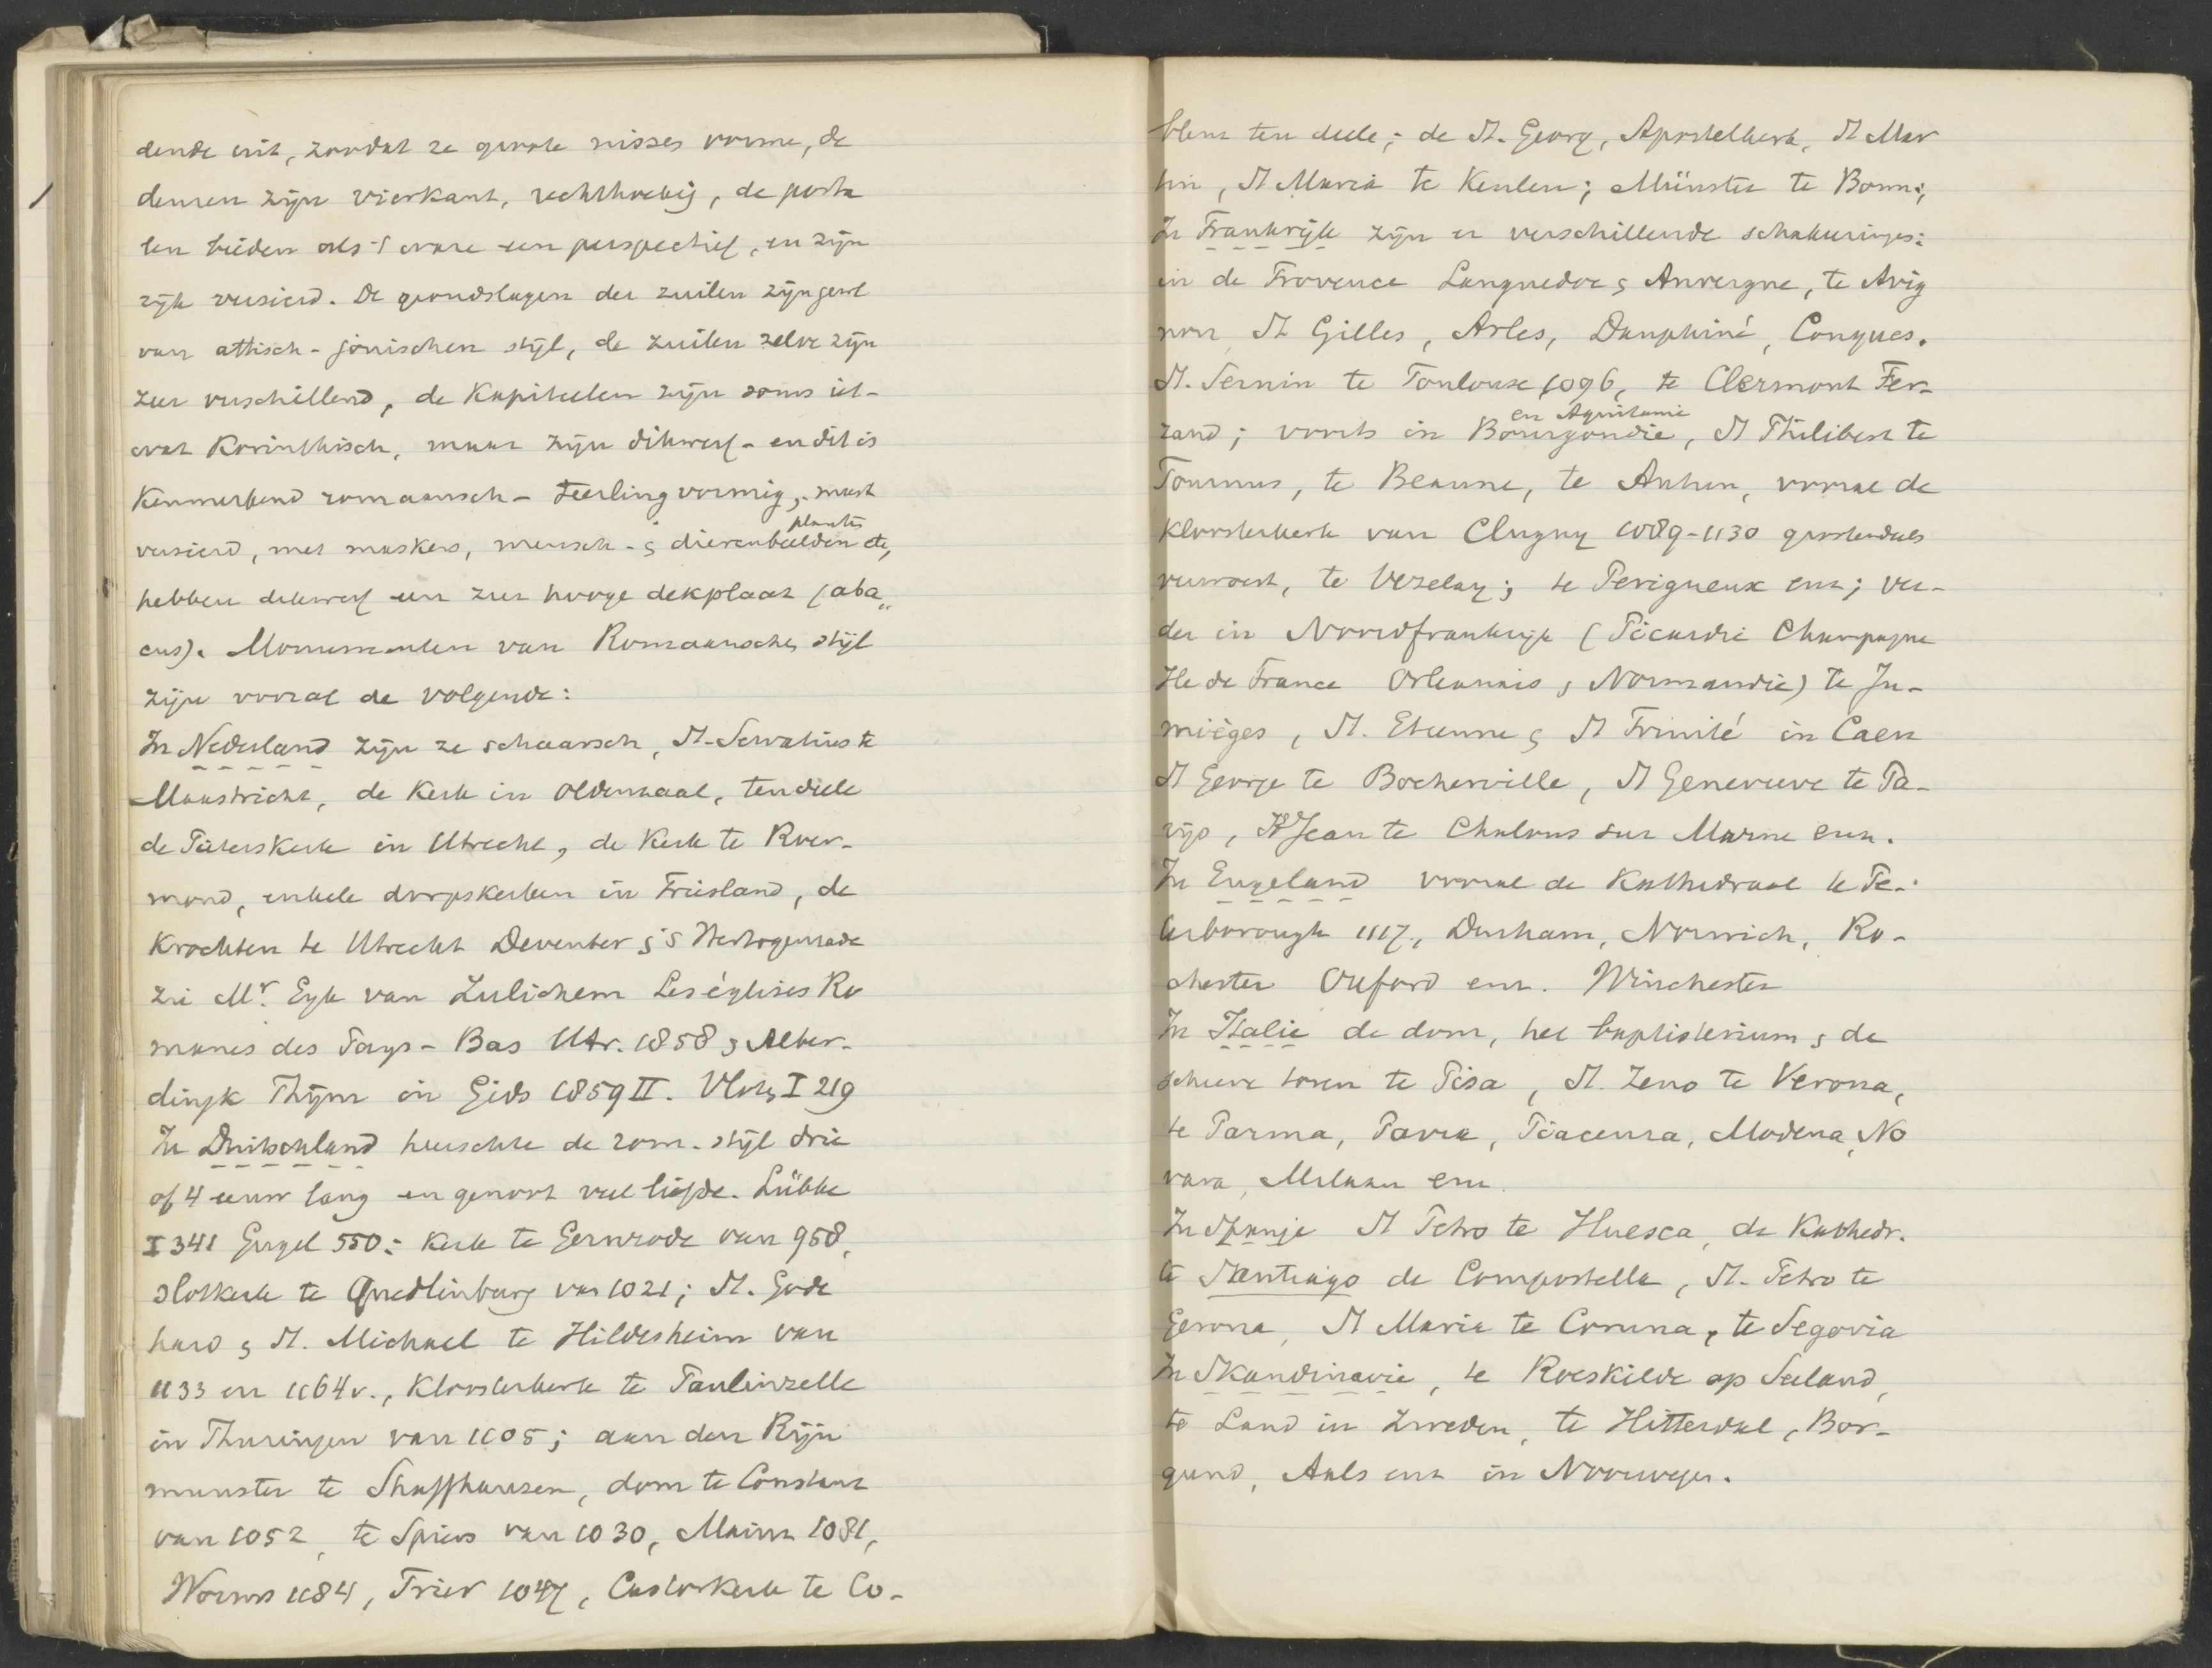 dende uit, zoodat ze groote nissen vorme, de
deuren zijn vierkant, rechthoekig, de porta
len bieden als 't ware een perspectief, en zijn
rijk versierd. De grondslagen der zuilen zijn gew
van attisch-jonischen stijl, de zuilen zelve zijn
zeer verschillend, de Kapiteelen zijn soms iet-
wat Korinthisch, maar zijn dikwerf - en dit is
Kenmerkend romaansch - teerlingvormig, meest
versierd, met maskers, mensch- & dierenbeelden planten etc,
hebben dikwerf een zeer hooge dekplaat (aba„
cus). Monumenten van Romaanschen stijl
zijn vooral de volgende:
In Nederland zijn ze schaarsch, St-Servatius te
Maastricht, de Kerk in Oldenzaal, ten deele
de Pieterskerk in Utrecht, de Kerk te Roer-
mond, enkele dorpskerken in Friesland, de
Krochten te Utrecht Deventer & 's Hertogenrade
zie Mr. Eyk van Zulichem Les églises Ro
manes des Pays-Bas Utr. 1858 & Alber-
dingk Thijm in Gids 1859 II. Vloten I 219
In Duitschland heerschte de rom. stijl drie
of 4 eeuw lang en genoot veel liefde. Lübke
I 341 Gugel 550: Kerk te Gernrode van 958,
slotkerk te Quedlinburg van 1021; St. Gode
hard & St. Michael te Hildesheim van
1133 en 1164v., Kloosterkerk te Paulinzelle
in Thuringen van 1105; aan den Rijn
munster te Shaffhausen, dom te Constanz
van 1052, te Spiers van 1030, Mainz 1081,
Worms 1184, Trier 1047, Castorkerk te Co-
blenz ten deele; de St. Georg, Apostelkerk, St Mar
tin, St Maria te Keulen; Münster te Bonn;
In Frankrijk zijn er verschillende schakeringen:
in de Provence Languedoc & Auvergne, te Avig
non, St Gilles, Arles, Dauphiné, Conques.
St. Sernin te Toulouse 1096, te Clermont Fer-
rand; voorts in Bourgondie en Aquitanie, St Philibert te
Tournus, te Beaune, te Autun, vooral de
Kloosterkerk van Clugny 1089-1130 grootendeels
verwoest, te Vezelay; te Perigueux enz; ver-
der in Noordfrankrijk (Picardie Champagne
Ile de France Orleannais & Normandie) te Ju-
mièges, St. Etienne & St Trinité in Caen
St George te Bocherville, St Genevieve te Pa-
rijs, St Jean te Chalons sur Marne enz.
In Engeland vooral de Kathedraal te Pe-
terborough 1117, Durham, Norwich, Ro-
chester Oxford enz. Winchester
In Italie de dom, het baptisterium & de
scheeve toren te Pisa, St. Zeno te Verona,
te Parma, Pavia, Piacenza, Modena, No
vara, Milaan enz.
In Spanje St Petro te Huesca, de Kathedr.
te Santiago de Compostella, St. Petro te
Gerona, St Maria te Coruna, te Segovia
In Skandinavie, te Roeskilde op Seeland,
te Lund in Zweden, te Hitterdal, Bor-
gund, Aals enz in Noorwegen.